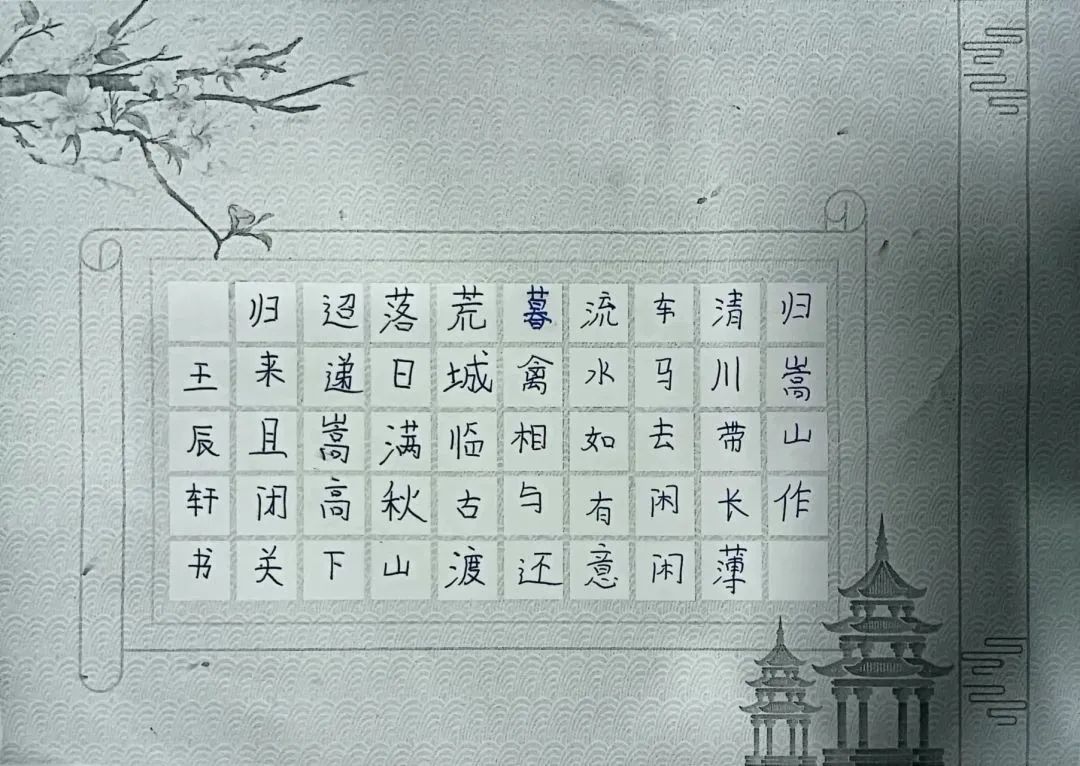 归嵩山作
清川带长薄
车马去闲闲
流水如有意
暮禽相与还
荒城临古渡
落日满秋山
迢递嵩高下
归来且闭关
王辰轩书